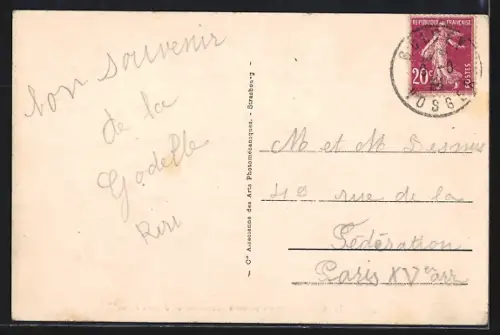 bon souvenir
de la
Godelle
Riri
— Cie Alsacienne des Arts Photomécaniques. - Strasbourg —
RÉPUBLIQUE FRANÇAISE
20c POSTES
VOSGES
M et M
rue de la
Fédération
Paris XVe arr